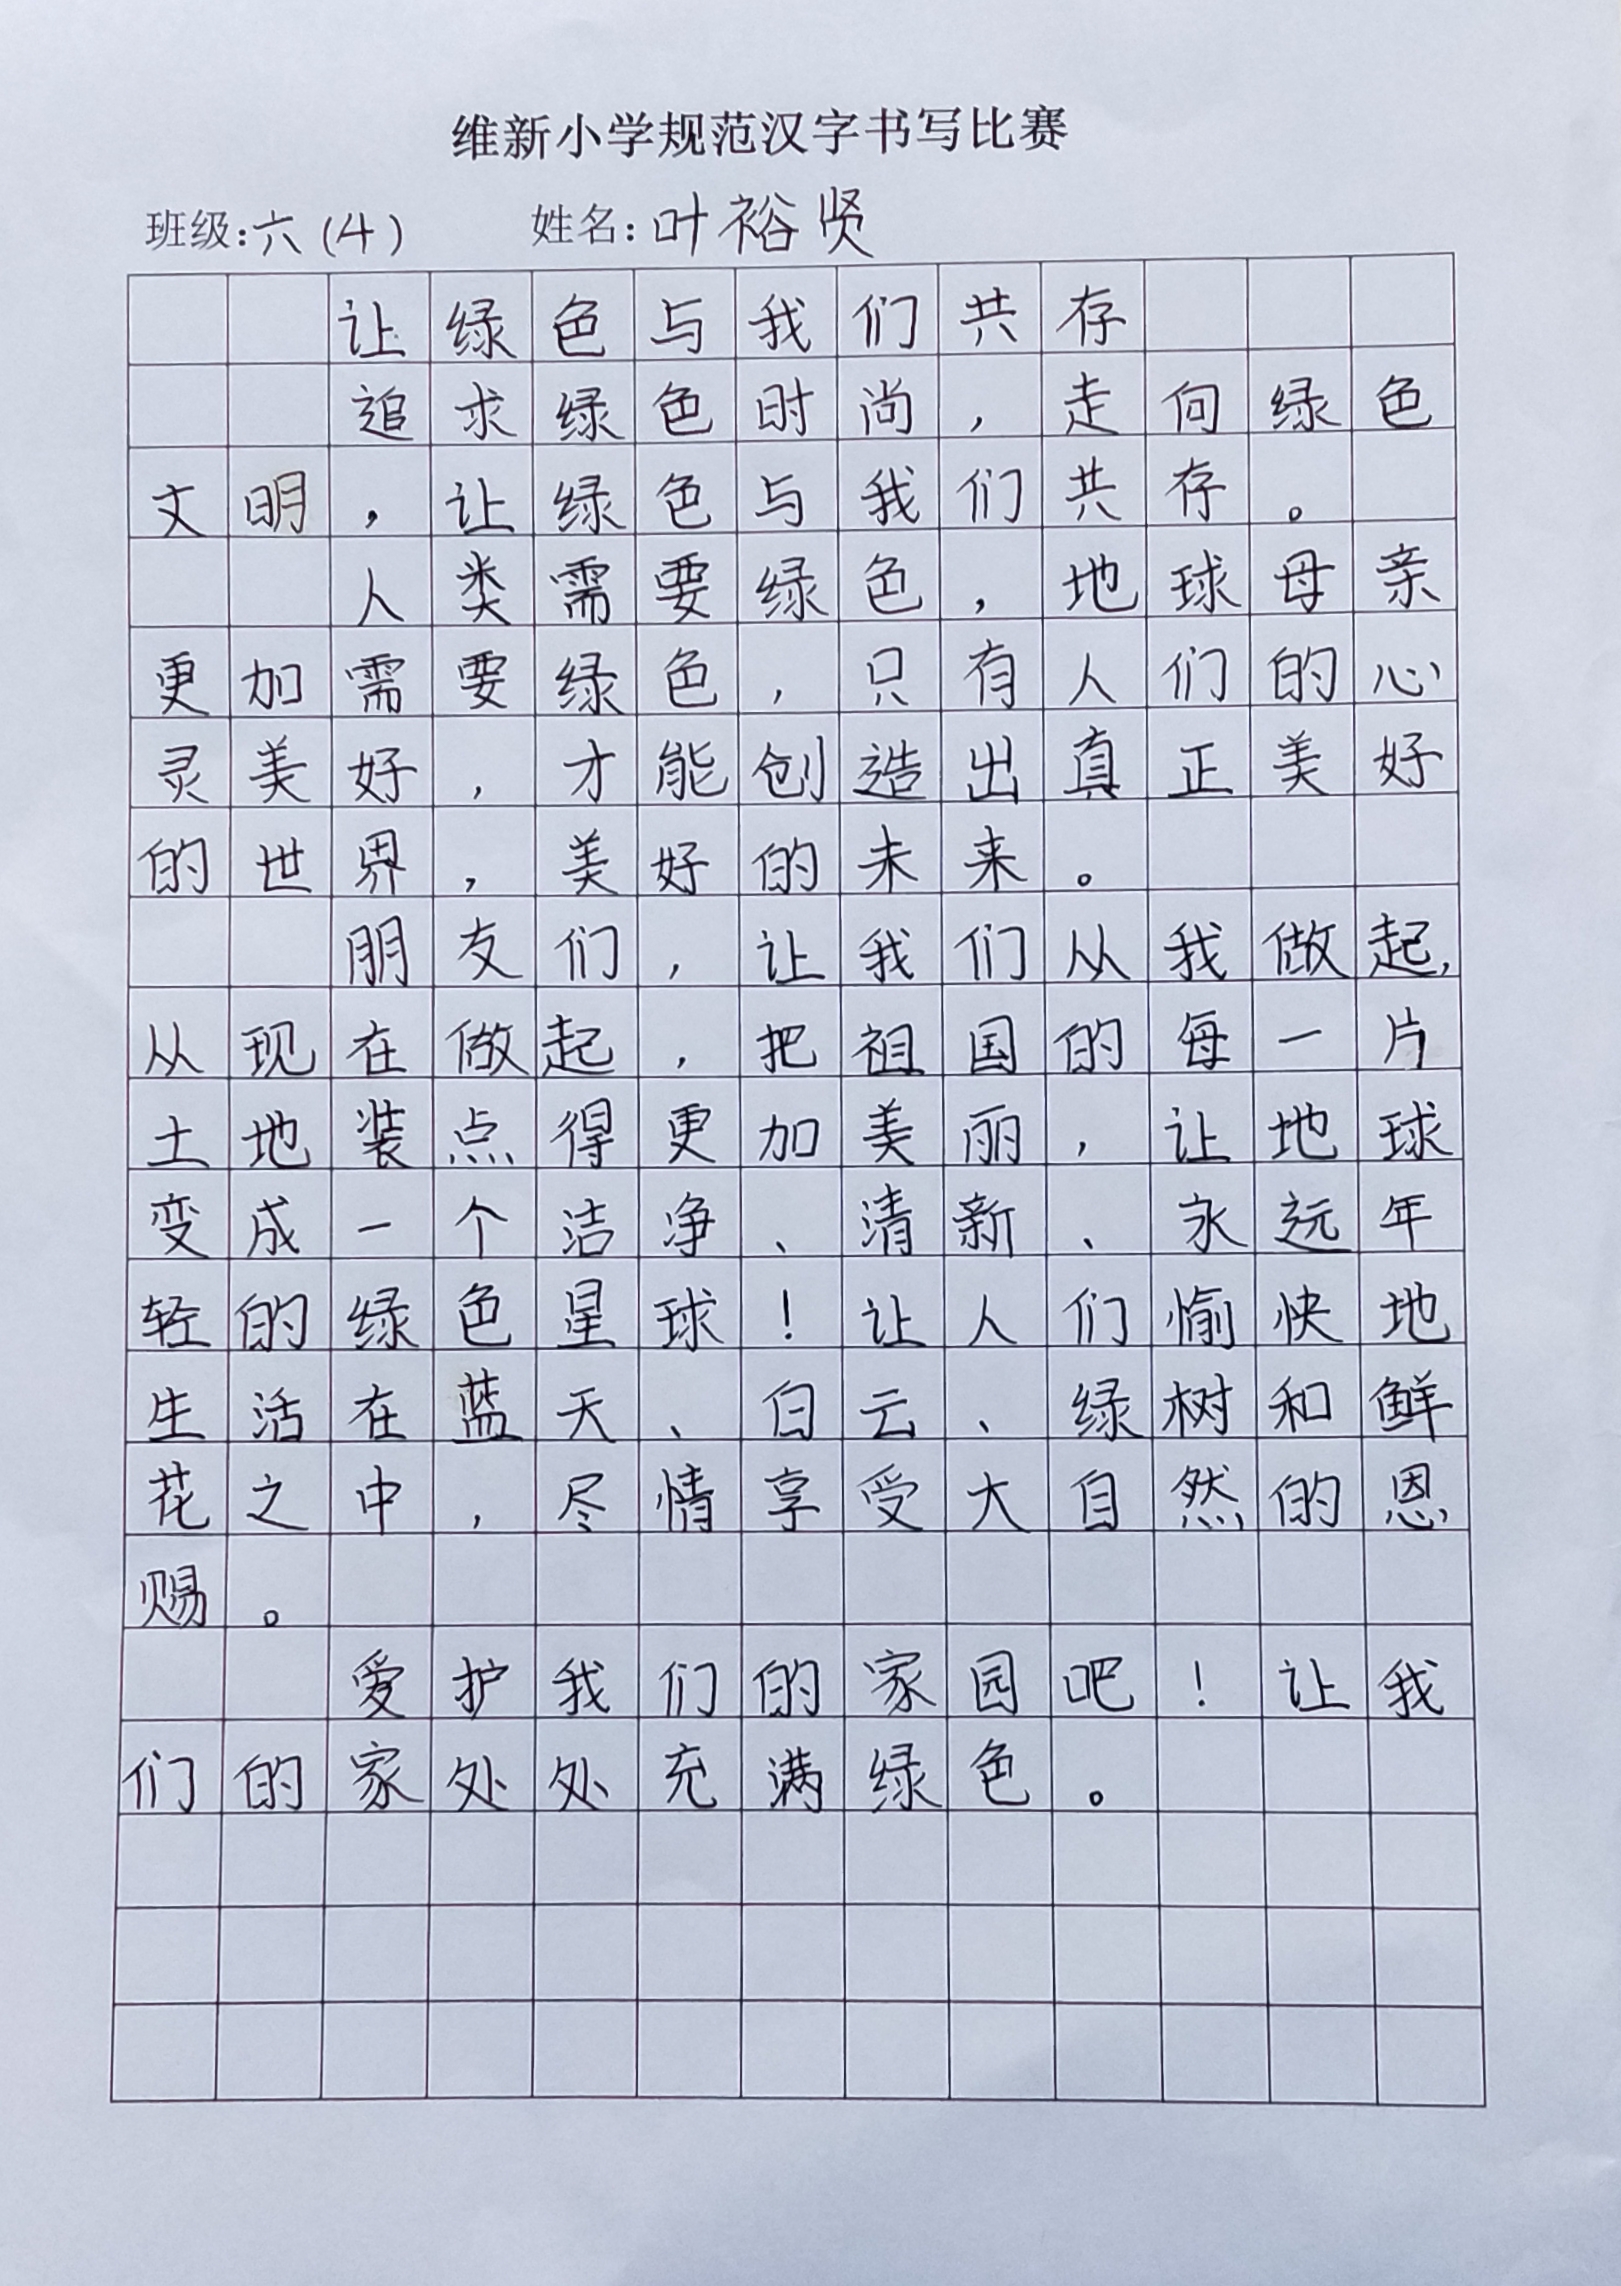 维新小学规范汉字书写比赛
班级:六(4) 姓名:叶裕贤
让绿色与我们共存
追求绿色时尚，走向绿色
文明，让绿色与我们共存。
人类需要绿色，地球母亲
更加需要绿色，只有人们的心
灵美好，才能创造出真正美好
的世界，美好的未来。
朋友们，让我们从我做起，
从现在做起，把祖国的每一片
土地装点得更加美丽，让地球
变成一个洁净、清新、永远年
轻的绿色星球！让人们愉快地
生活在蓝天、白云、绿树和鲜
花之中，尽情享受大自然的恩
赐。
爱护我们的家园吧！让我
们的家处处充满绿色。